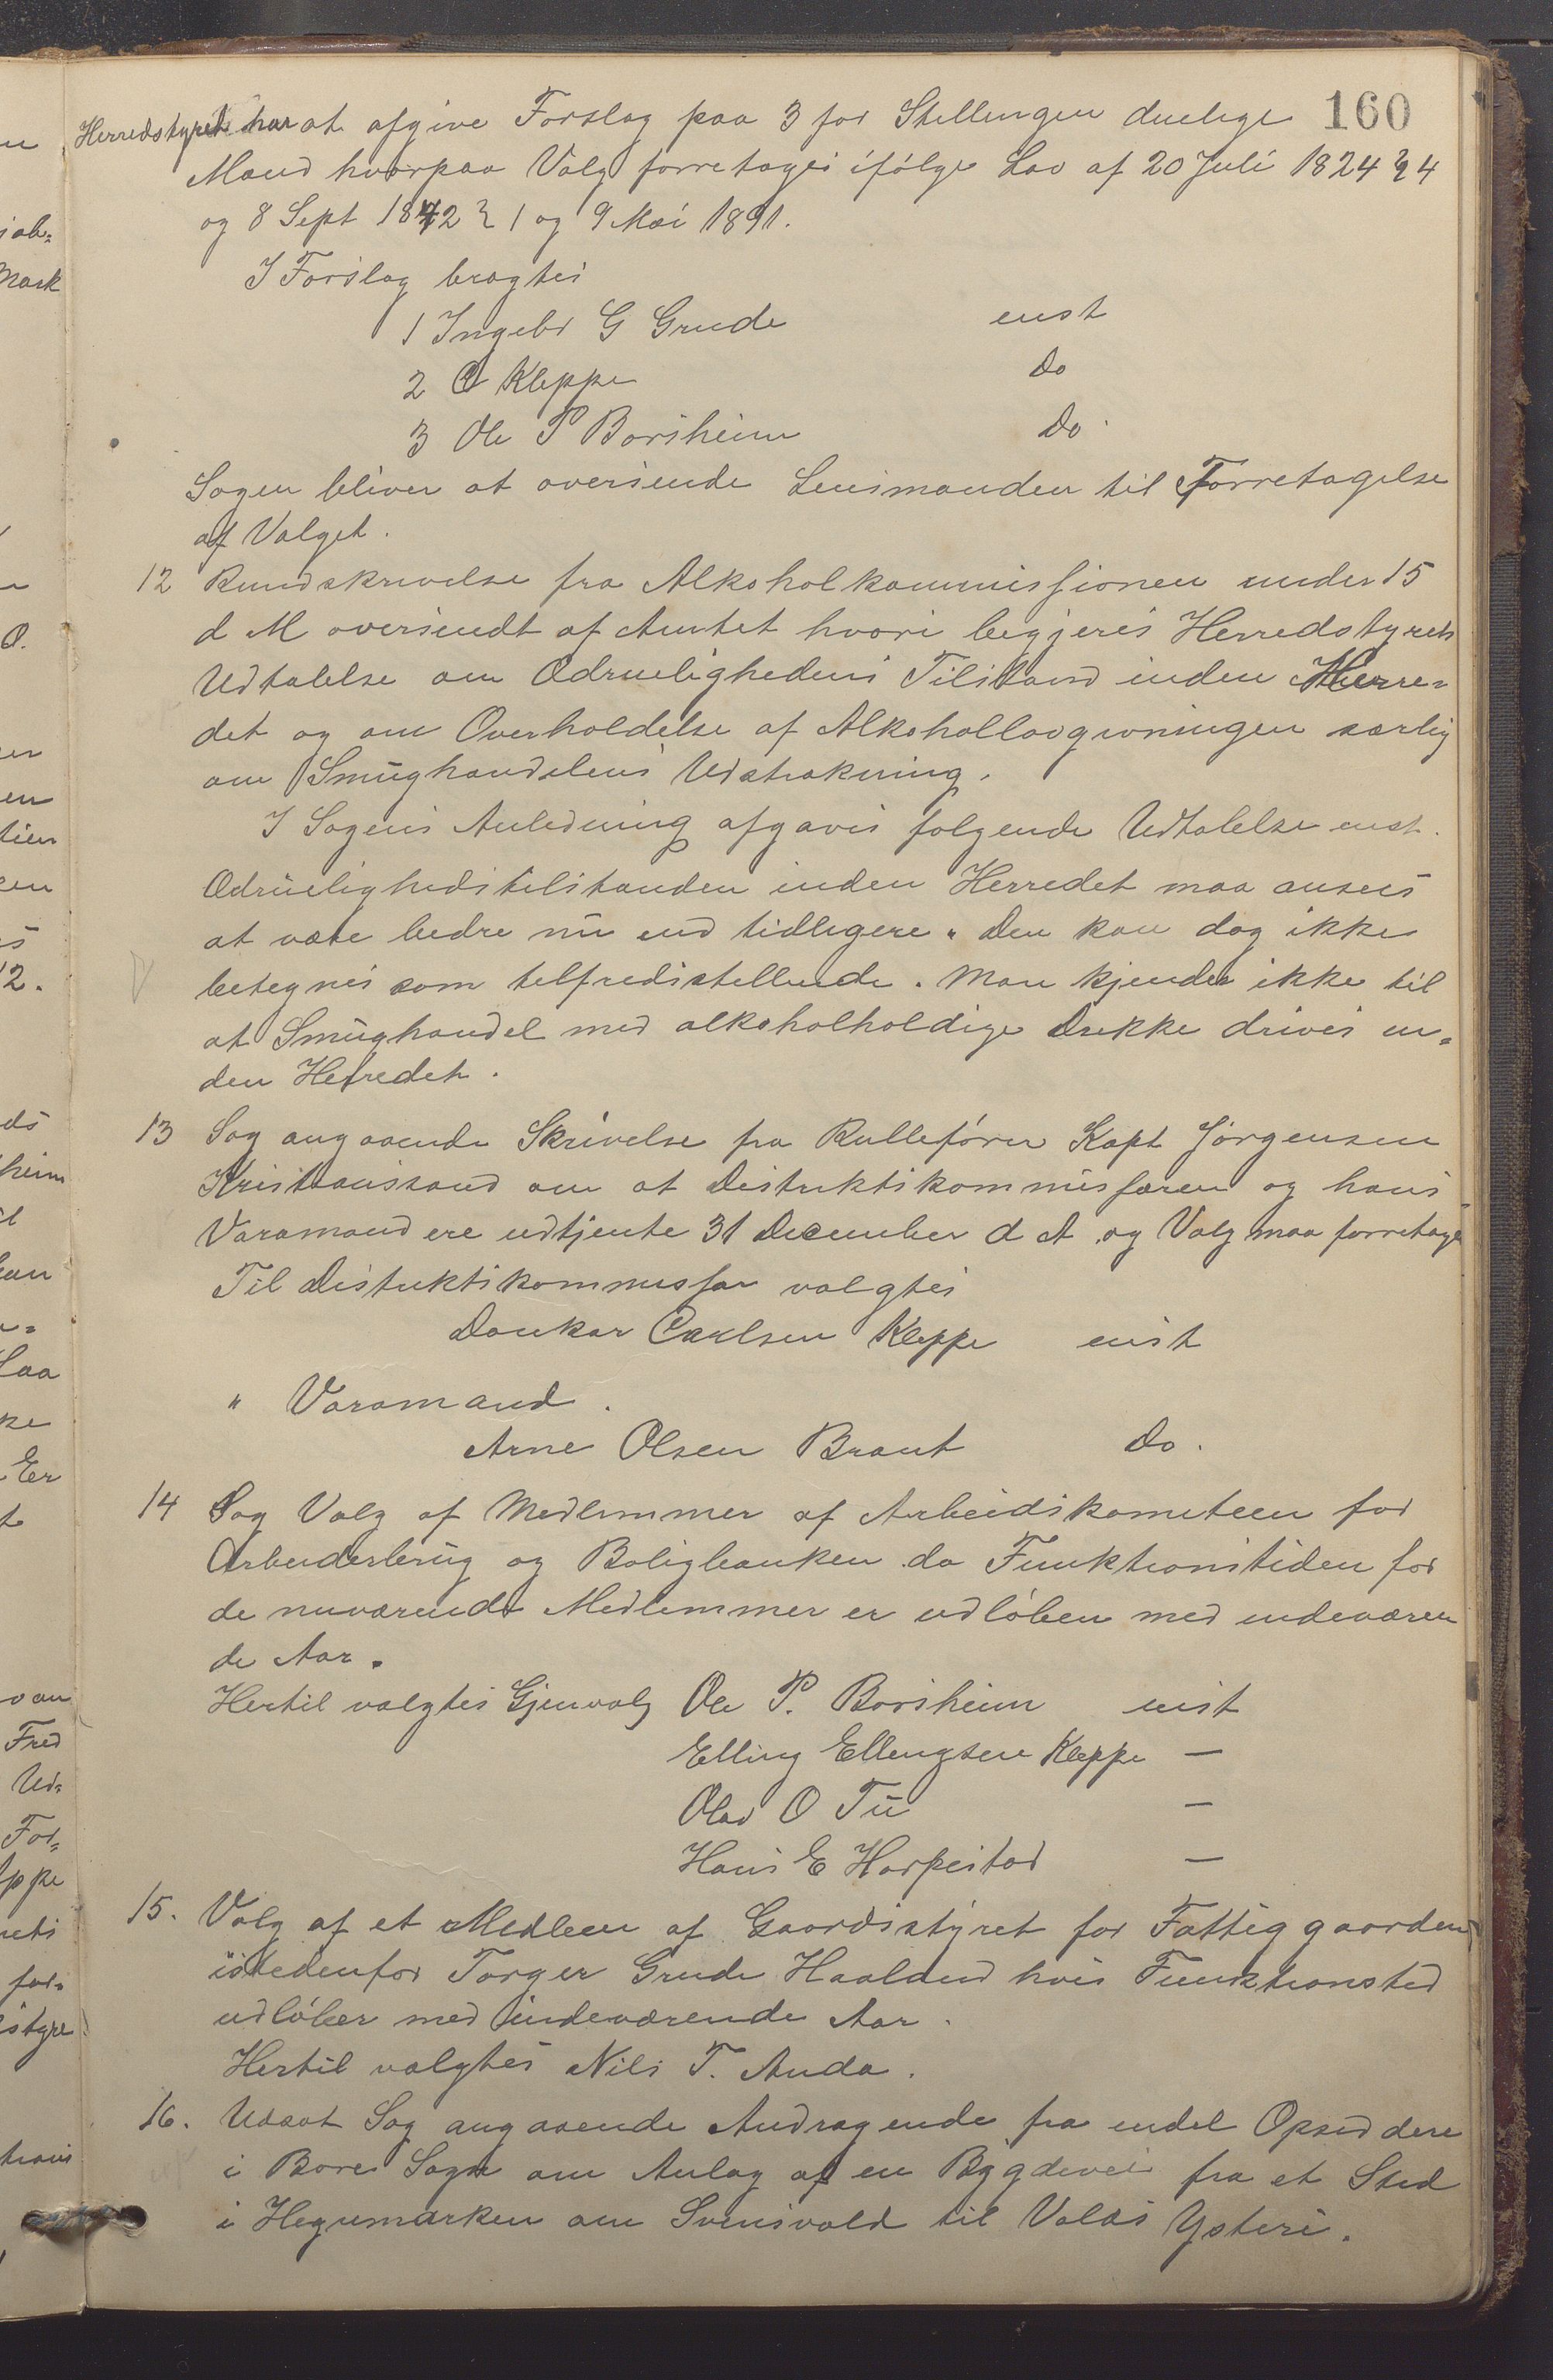 160
Herredstyret har at afgive Forslag paa 3 for Stellingen duelige
Mænd hvorpaa Valg forretages ifølge Lov af 20 Juli 1824 § 4
og 8 Sept 1842 § 1 og 9 Mai 1891.
I Forslag bragtes
1 Ingebr G Grude enst
2 O Kleppe Do
3 Ole P Borsheim Do.
Sagen bliver at oversende Lensmanden til Forretagelse
af Valget.
12 Rundskrivelse fra Alkoholkommissionen under 15
d M oversendt af Amtet hvori begjeres Herredstyrets
Udtalelse om Ædruelighedens Tilstand inden Herre=
det og om Overholdelse af Alkohollovgivningen særlig
om Smughandelens Udstrækning.
I Sagens Anledning afgaves følgende Udtalelse enst.
Ædruelighedstilstanden inden Herredet maa ansees
at være bedre nu end tidligere. Den kan dog ikke
betegnes som tilfredsstellende. Man kjender ikke til
at Smughandel med alkoholholdige Drikke drives in=
den Herredet.
13 Sag angaaende Skrivelse fra Rullefører Kapt Jørgensen
Kristianssand om at Distriktskommissæren og hans
Varamand ere udtjente 31 December d A. og Valg maa forretages
Til Distriktskommissær valgtes
Dankar Carlsen Kleppe enst
" Varamand.
Arne Olsen Braut Do.
14 Sag Valg af Medlemmer af Arbeidskomiteen for
Arbeiderbrug og Boligbanken da Funktionstiden for
de nuværende Medlemmer er udløben med indeværen
de Aar.
Hertil valgtes Gjenvalg Ole P. Borsheim enst
Elling Ellingsen Kleppe —
Olav O Tu —
Hans E Horpestad —
15. Valg af et Medlem af Gaardsstyret for Fattiggaarden
istedenfor Torger Grude Haaland hvis Funktionstid
udløber med indeværende Aar.
Hertil valgtes Nils T. Anda.
16. Udsat Sag angaaende Andragende fra endel Opsiddere
i Bore Sogn om Anlæg af en Bygdevei fra et Sted
i Hegremarken om Svensvold til Volds Ysteri.